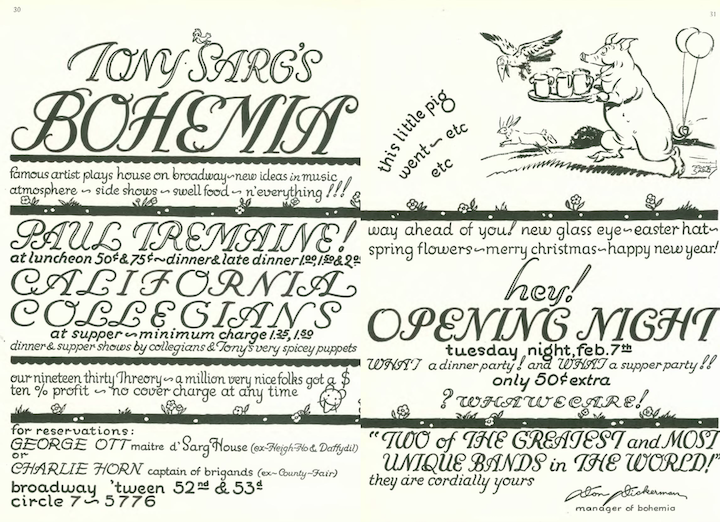 30
TONY SARG'S
BOHEMIA
famous artist plays house on broadway~new ideas in music
atmosphere ~ side shows ~ swell food ~ n'everything!!!
PAUL TREMAINE!
at luncheon 50¢ & 75¢~dinner & late dinner 1.00, 1.50 & 2.00
CALIFORNIA
COLLEGIANS
at supper~minimum charge 1.25, 1.50
dinner & supper shows by collegians & Tony's very spicey puppets
our nineteen thirty Threory~a million very nice folks got a $
ten % profit ~ no cover charge at any time
for reservations:
GEORGE OTT maitre d'Sarg House (ex-Heigh-Ho & Daffydil)
or
CHARLIE HORN captain of brigands (ex-County-Fair)
broadway 'tween 52nd & 53d
circle 7~5776
31
this little pig
went ~ etc
etc
way ahead of you! new glass eye~easter hat~
spring flowers~merry christmas~happy new year!
hey!
OPENING NIGHT
tuesday night, feb. 7th
WHAT a dinner party! and WHAT a supper party!!
only 50¢ extra
? WHAWECARE!
"TWO of THE GREATEST and MOST
UNIQUE BANDS in THE WORLD!"
they are cordially yours
Don Dickerman
manager of bohemia